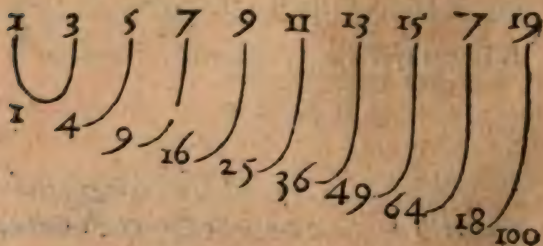 1 3 5 7 9 11 13 15 7 19
1 4 9 16 25 36 49 64 18 100